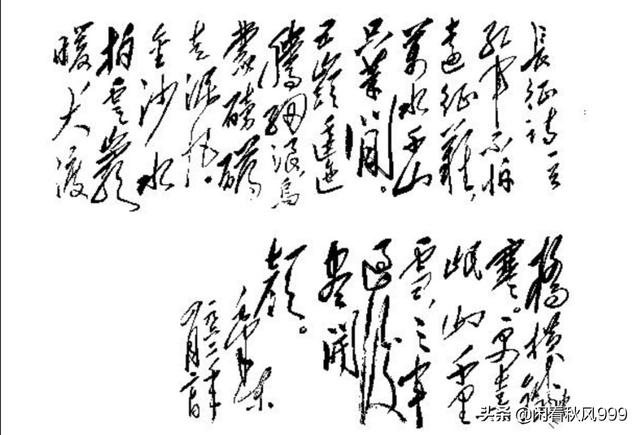 長征詩一首
紅軍不怕
遠征難，
萬水千山
只等閒。
五嶺逶迤
騰細浪烏
蒙磅礴
走泥丸。
金沙水
拍雲巖
暖大渡
橋橫鐵索
寒。更喜
岷山千里
雪，三軍
過後
盡開
顏。
毛澤東
一九六二年
头条 @闲看秋风999